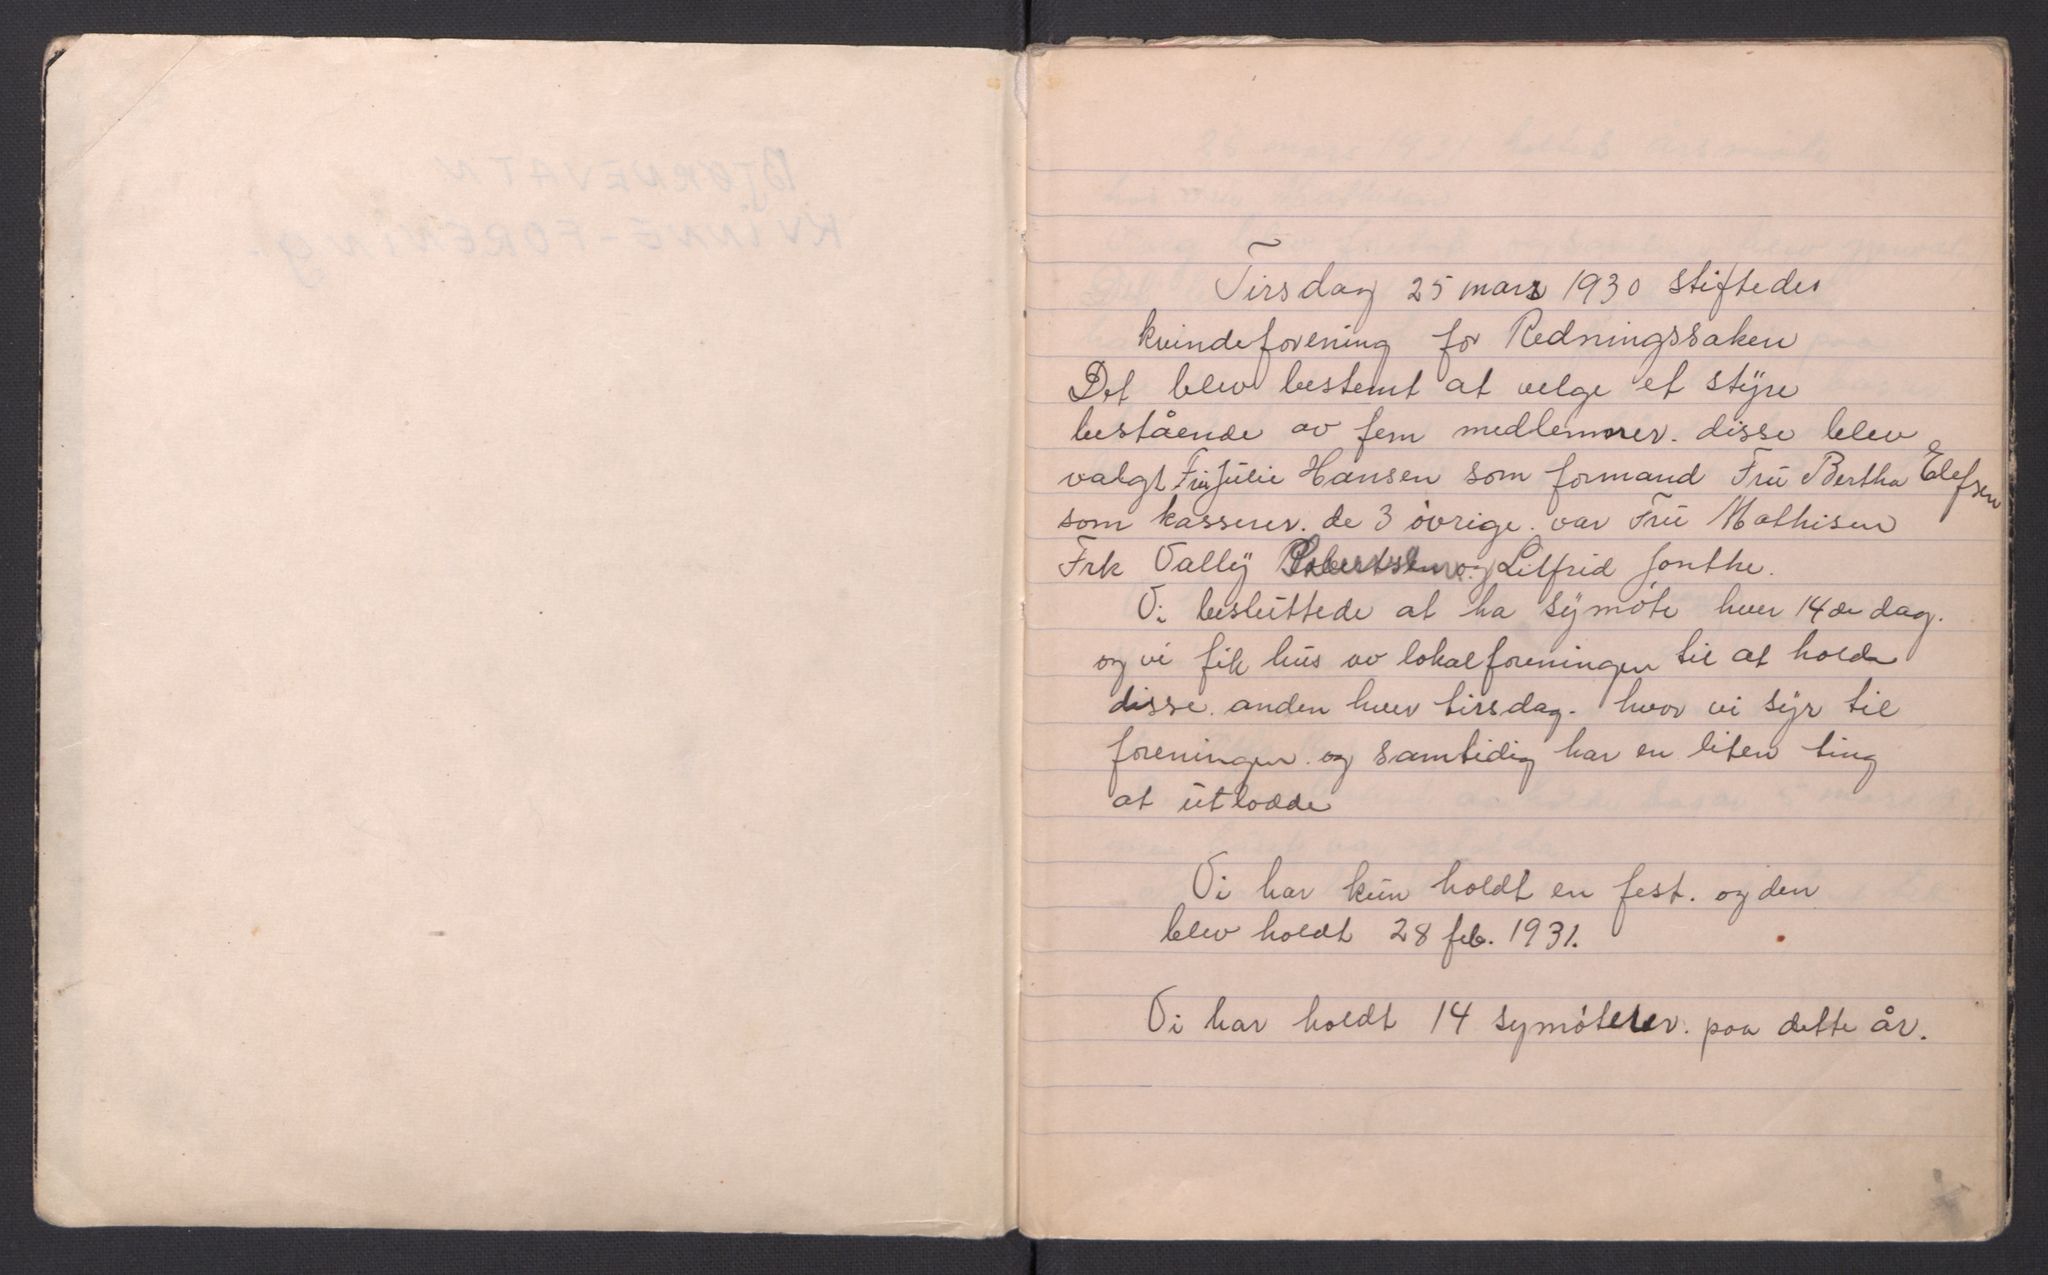 BJØRNEVATN
KVINNE-FORENING.
Tirsdag 25 mars 1930 stiftedes
kvindeforening for Redningssaken
Det blev bestemt at velge et styre
bestående av fem medlemmer. disse blev
valgt Fru Julie Hansen som formand Fru Bertha Elefsen
som kasserer. de 3 øvrige. var Frü Mathisen
Frk Vally og Lilfrid Jonthe.
Vi besluttede at ha symøte hver 14 de dag.
og vi fik hus av lokalforeningen til at holde
disse. anden hver tirsdag. hvor vi syr til
foreningen. og samtidig har en liten ting
at utlodde
Vi har kun holdt en fest. og den
blev holdt 28 feb. 1931.
Vi har holdt 14 symøterer. paa dette år.